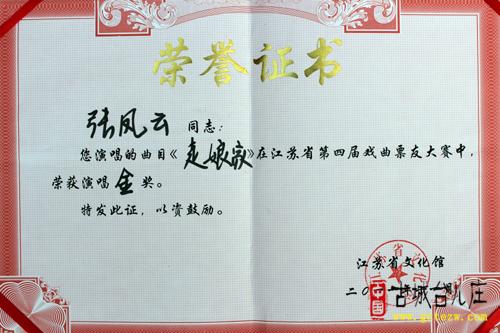 荣誉证书
张凤云 同志：
您演唱的曲目《走娘家》在江苏省第四届戏曲票友大赛中，
荣获演唱金奖。
特发此证，以资鼓励。
江苏省文化馆
二〇
中国 古城台儿庄